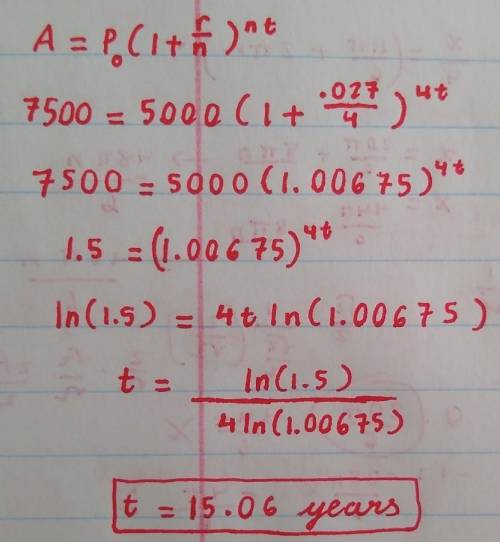 A = P₀(1+r/n)^nt
7500 = 5000(1+.027/4)^4t
7500 = 5000(1.00675)^4t
1.5 = (1.00675)^4t
ln(1.5) = 4t ln(1.00675)
t = ln(1.5)/4ln(1.00675)
t = 15.06 years